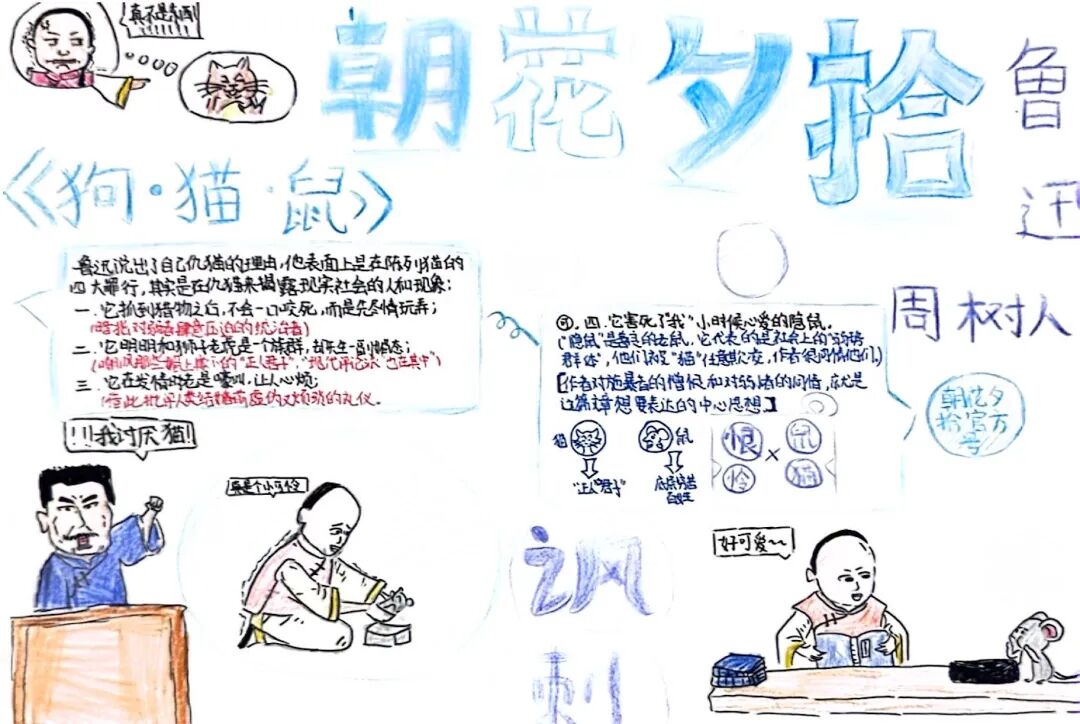 真不是东西!!!!!!!
朝花夕拾
鲁迅
《狗·猫·鼠》
鲁迅说出了自己仇猫的理由,他表面上是在陈列猫的
四大罪行,其实是在仇猫来揭露现实社会的人和现象;
一.它抓到猎物之后,不会一口咬死,而是先尽情玩弄;
(暗指对弱者肆意压迫的统治者)
二.它明明和狮子老虎是一个族群,却天生一副媚态;
"正人君子","现代评论派"也在其中")
三.它在发情时老是嚎叫,让人心烦;
(借此批评人类结婚前虚伪又烦琐的礼仪。
周树人
四.它害死了"我"小时候心爱的隐鼠.
("隐鼠"是善良的老鼠,它代表的是社会上的"弱势
群体",他们被"猫"任意欺凌,作者很同情他们.)
[作者对施暴者的憎恨和对弱者的同情,就是
这篇章想要表达的中心思想.]
猫
鼠
"正人君子"
底层弱者
百姓
恨
鼠
×
怜
猫
朝花夕
拾官方
号
!!!我讨厌猫!
真是个小可怜
讽
刺
好可爱~~